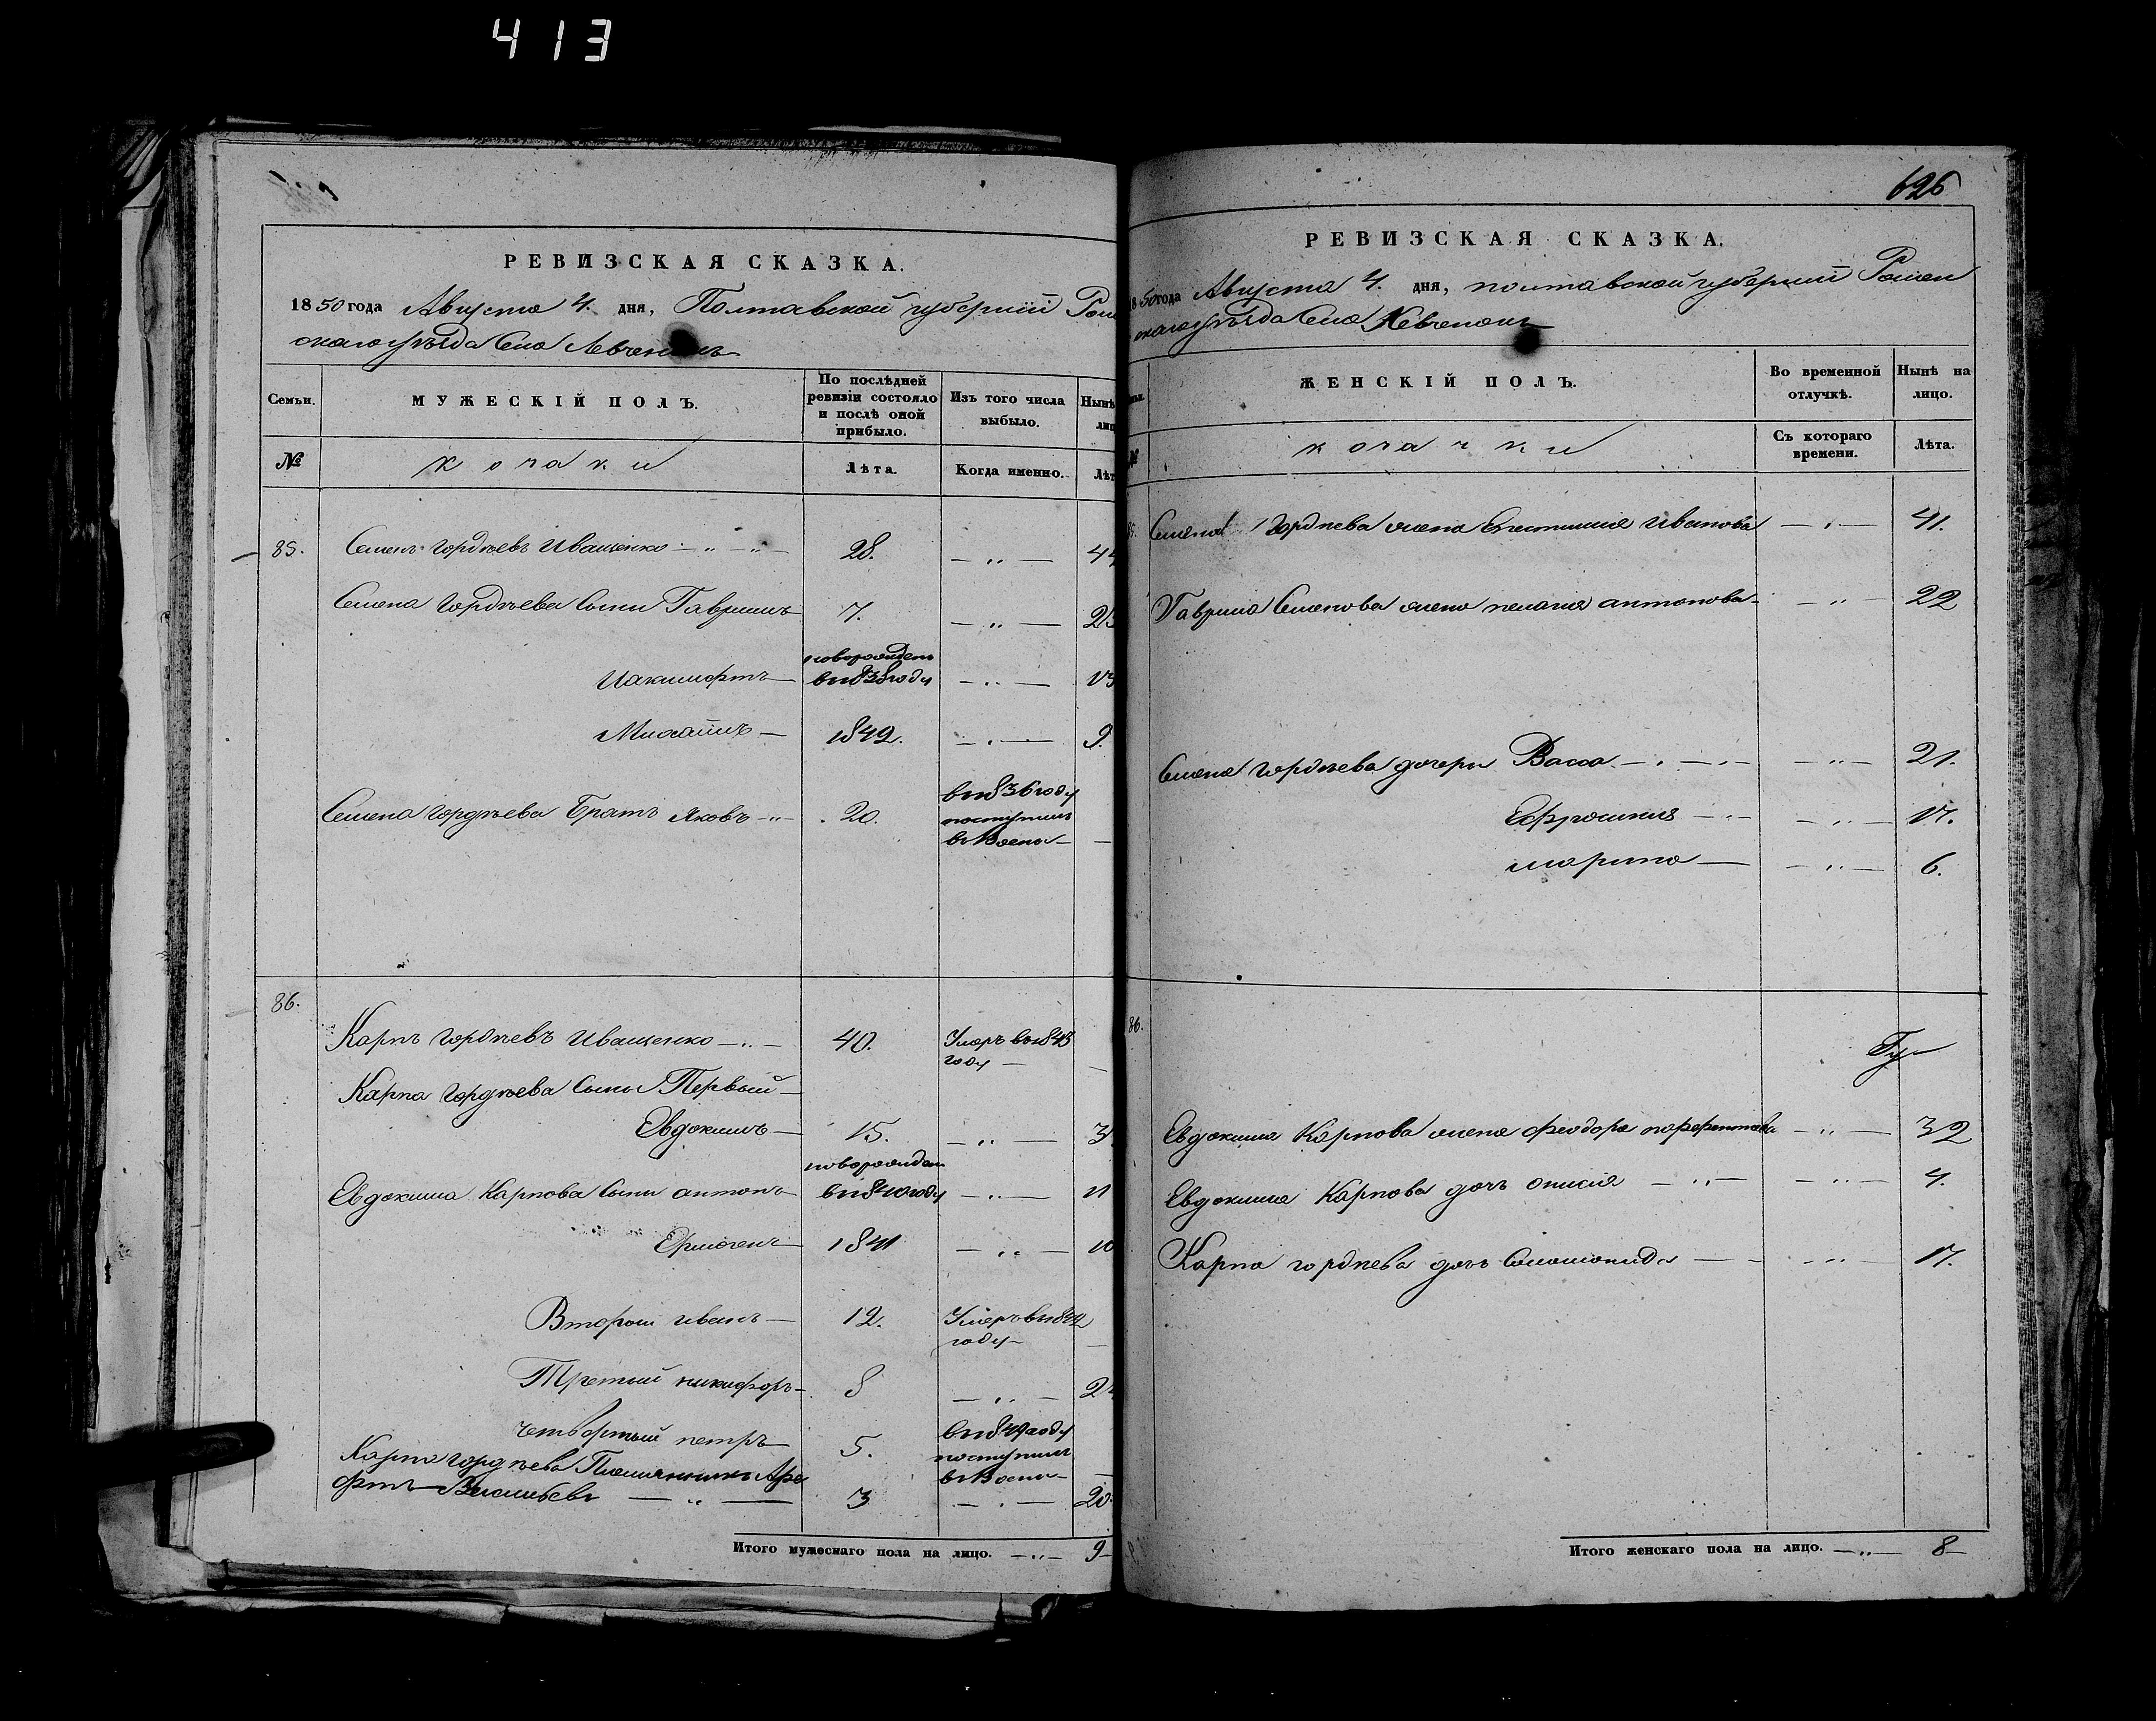 413
РЕВИЗСКАЯ СКАЗКА.
1850 года Августа 4. дня, Полтавской губерніи
скаго уѣзда Села
Семьи.
МУЖЕСКІЙ ПОЛЪ.
По послѣдней ревизіи состояло и послѣ оной прибыло.
Изъ того числа выбыло.
Нынѣ
№
козаки
Лѣта.
Когда именно.
85. Семенъ Гордѣевъ Иващенко 28. 44
Семена Гордѣева Сыны Гавриилъ 7.
новорожденъ
въ 1838 году
Михаилъ 1842. 9.
Семена Гордѣева Братъ Яковъ 20.
въ 1836 году
поступилъ
86.
Карпъ Гордѣевъ Иващенко 40. Умеръ въ 1843
году
Карпа Гордѣева Сыны Первый
Евдокимъ 15.
новорожден
Евдокима Карпова Сыны антонъ въ 1840 году 11
1841 10
Второй иванъ 12. Умеръ въ 1842
году
Третий никифоръ 8
четвертый петръ 5.
поступилъ
Карпа Гордѣева Племянникъ
3 20
Итого мужескаго пола на лицо. 9
626
РЕВИЗСКАЯ СКАЗКА.
1850 года Августа 4. дня, полтавской губерніи Ромен
скаго уѣзда Села
ЖЕНСКІЙ ПОЛЪ.
Во временной отлучкѣ.
Нынѣ на лицо.
№
козачки
Съ котораго времени.
Лѣта.
85. Семена Гордѣева жена Иванова 41.
Гаврила Семенова жена пелагія антонова 22
Семена Гордѣева дочери Васса 21.
Ефросинія 17.
марина 6.
86.
Евдокима Карпова жена феодора 32
Евдокима Карпова дочь 4.
Карпа гордѣева дочь Соломонида 17.
Итого женскаго пола на лицо. 8